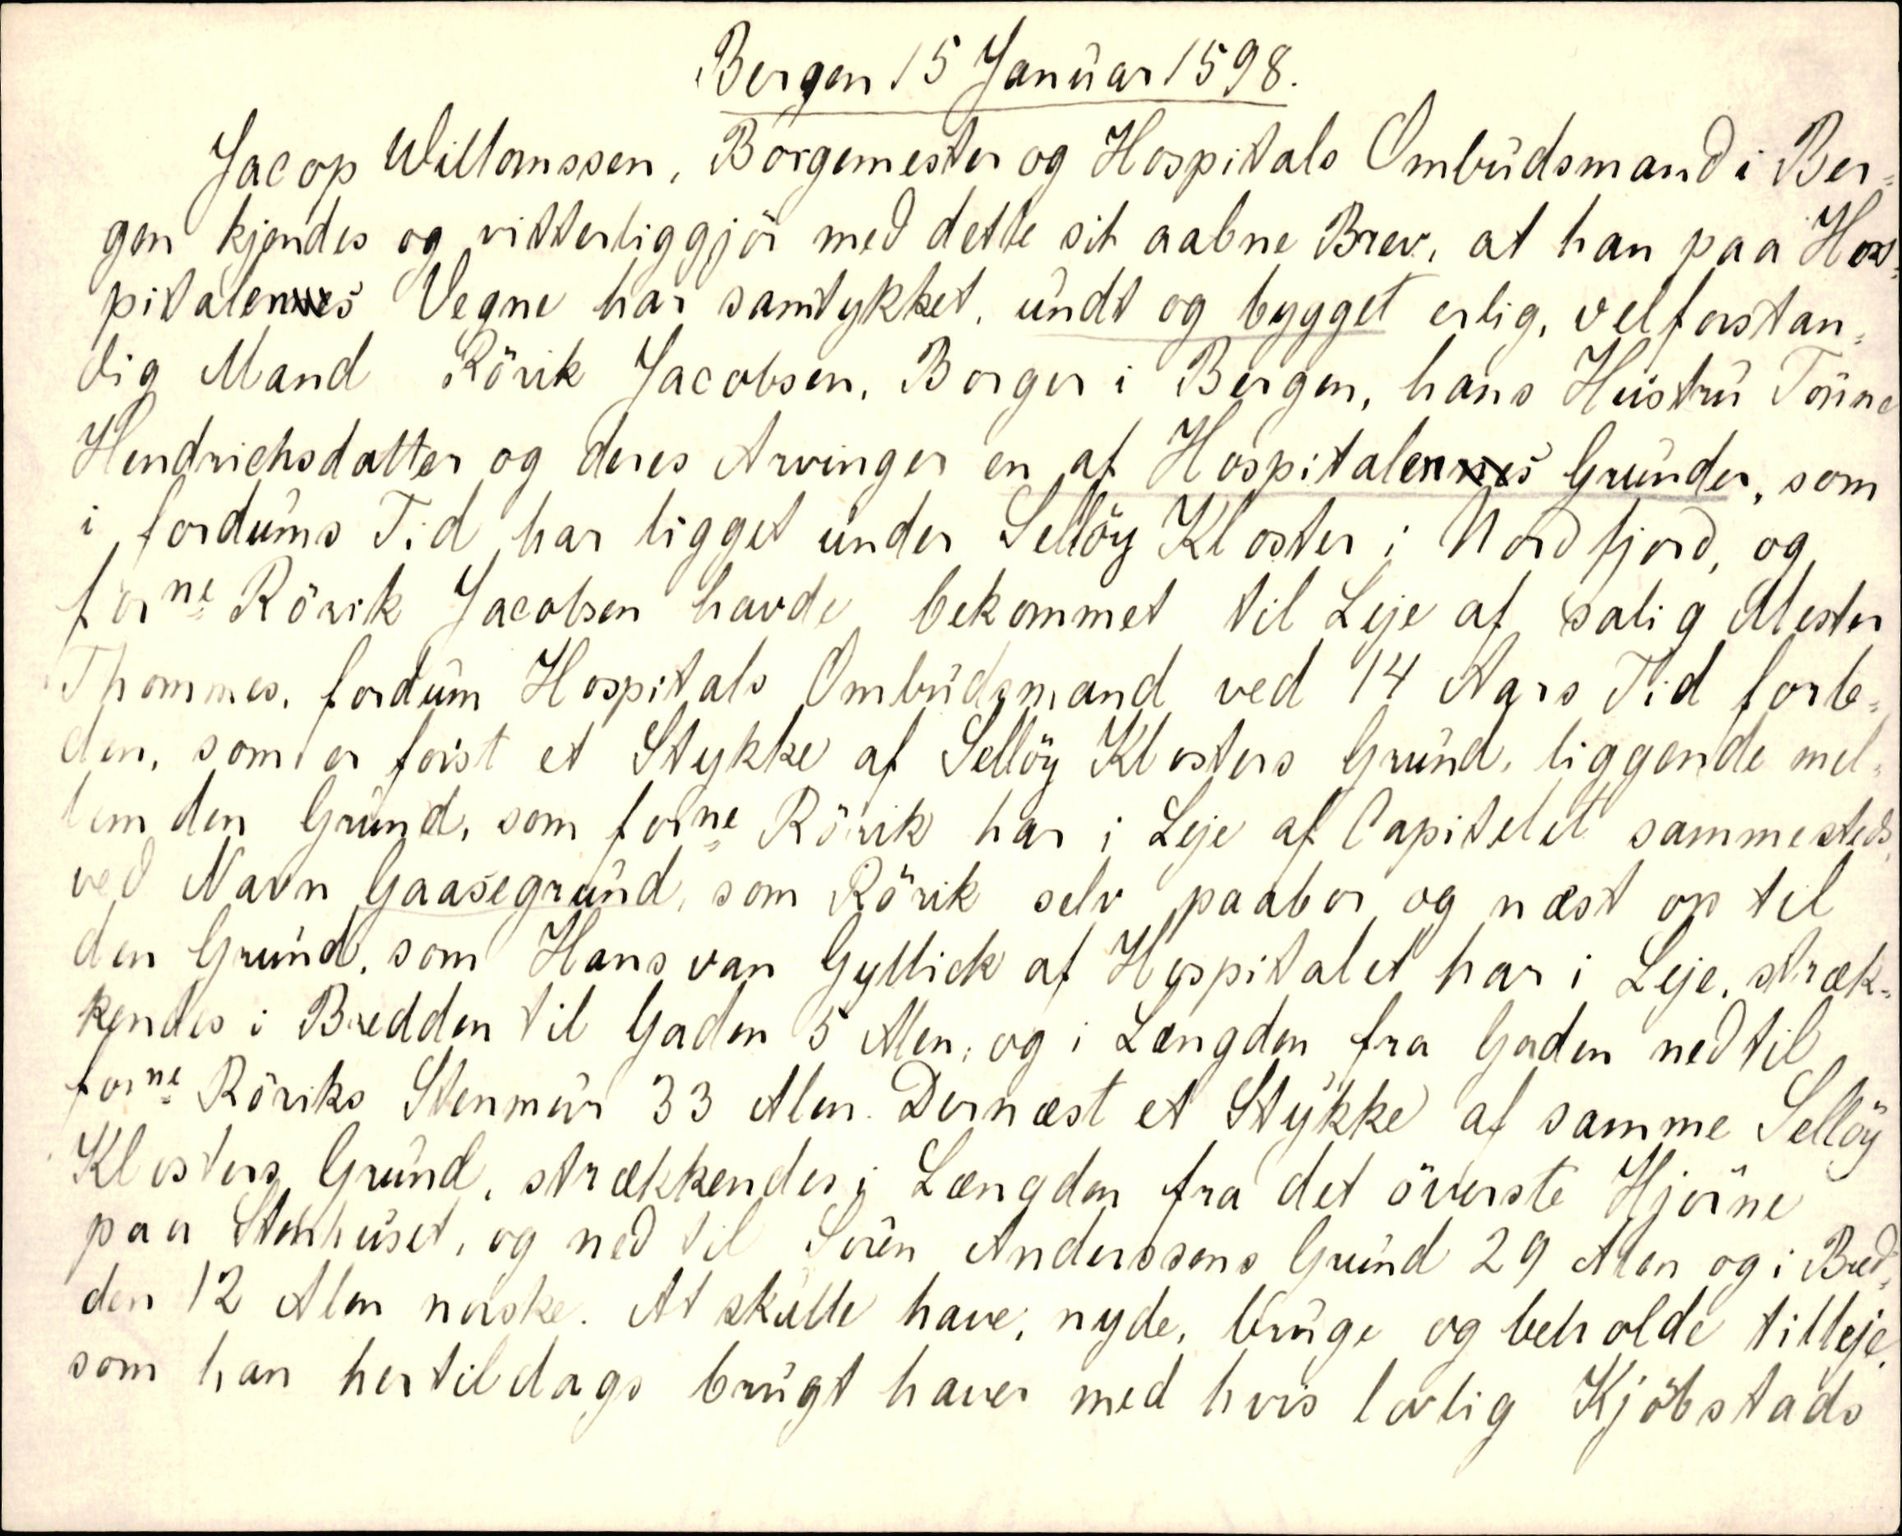 Bergen 15 Januar 1598.
Jacop Willomssen, Borgemester og Hospitals Ombudsmand i Ber-
gen kjendes og vitterliggjör med dette sit aabne Brev, at han paa Hos-
pitalens Vegne har samtykket, undt og bygget erlig, velforstan-
dig Mand Rörik Jacobsen, Borger i Bergen, hans Hustru Tönne
Hendrichsdatter og deres Arvinger en af Hospitalens Grunder, som
i fordums Tid har ligget under Sellöy Kloster i Nordfjord, og
forne Rörik Jacobsen havde bekommet til Leje af salig Mester
Thommes, fordum Hospitals Ombudsmand ved 14 Aars Tid forle-
den, som er först et Stykke af Sellöy Klosters Grund, liggende mel-
lem den Grund, som forne Rörik har i Leje af Capitelet sammesteds,
ved Navn Gaasegrund, som Rörik selv paabor og næst op til
den Grund, som Hans van Gyllick af Hospitalet har i Leje, stræk-
kendes i Bredden til Gaden 5 Alen, og i Længden fra Gaden ned til
forne Röriks Stenmur 33 Alen. Dernæst et Stykke af samme Sellöy
Klosters Grund, strækkendes i Længden fra det överste Hjörne
paa Stenhuset, og ned til Sören Anderssens Grund 29 Alen og i Bred-
den 12 Alen norske. At skulle have, nyde, bruge og beholde til leje,
som han hertildags brugt haver med hvis lovlig Kjöbstads